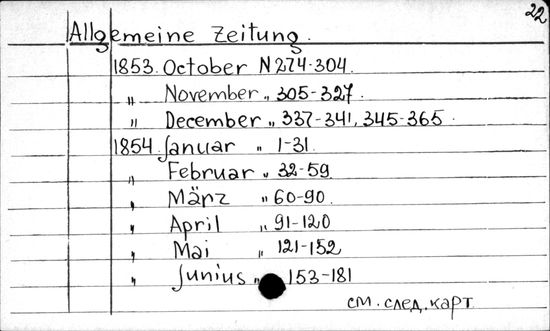 22
Allgemeine Zeitung.
1853. October N 274-304.
" November " 305-327.
" December " 337-341, 345-365.
1854. Januar " 1-31.
" Februar " 32-59
" März " 60-90.
" April " 91-120
" Mai " 121-152
" Junius " 153-181
см. след. карт